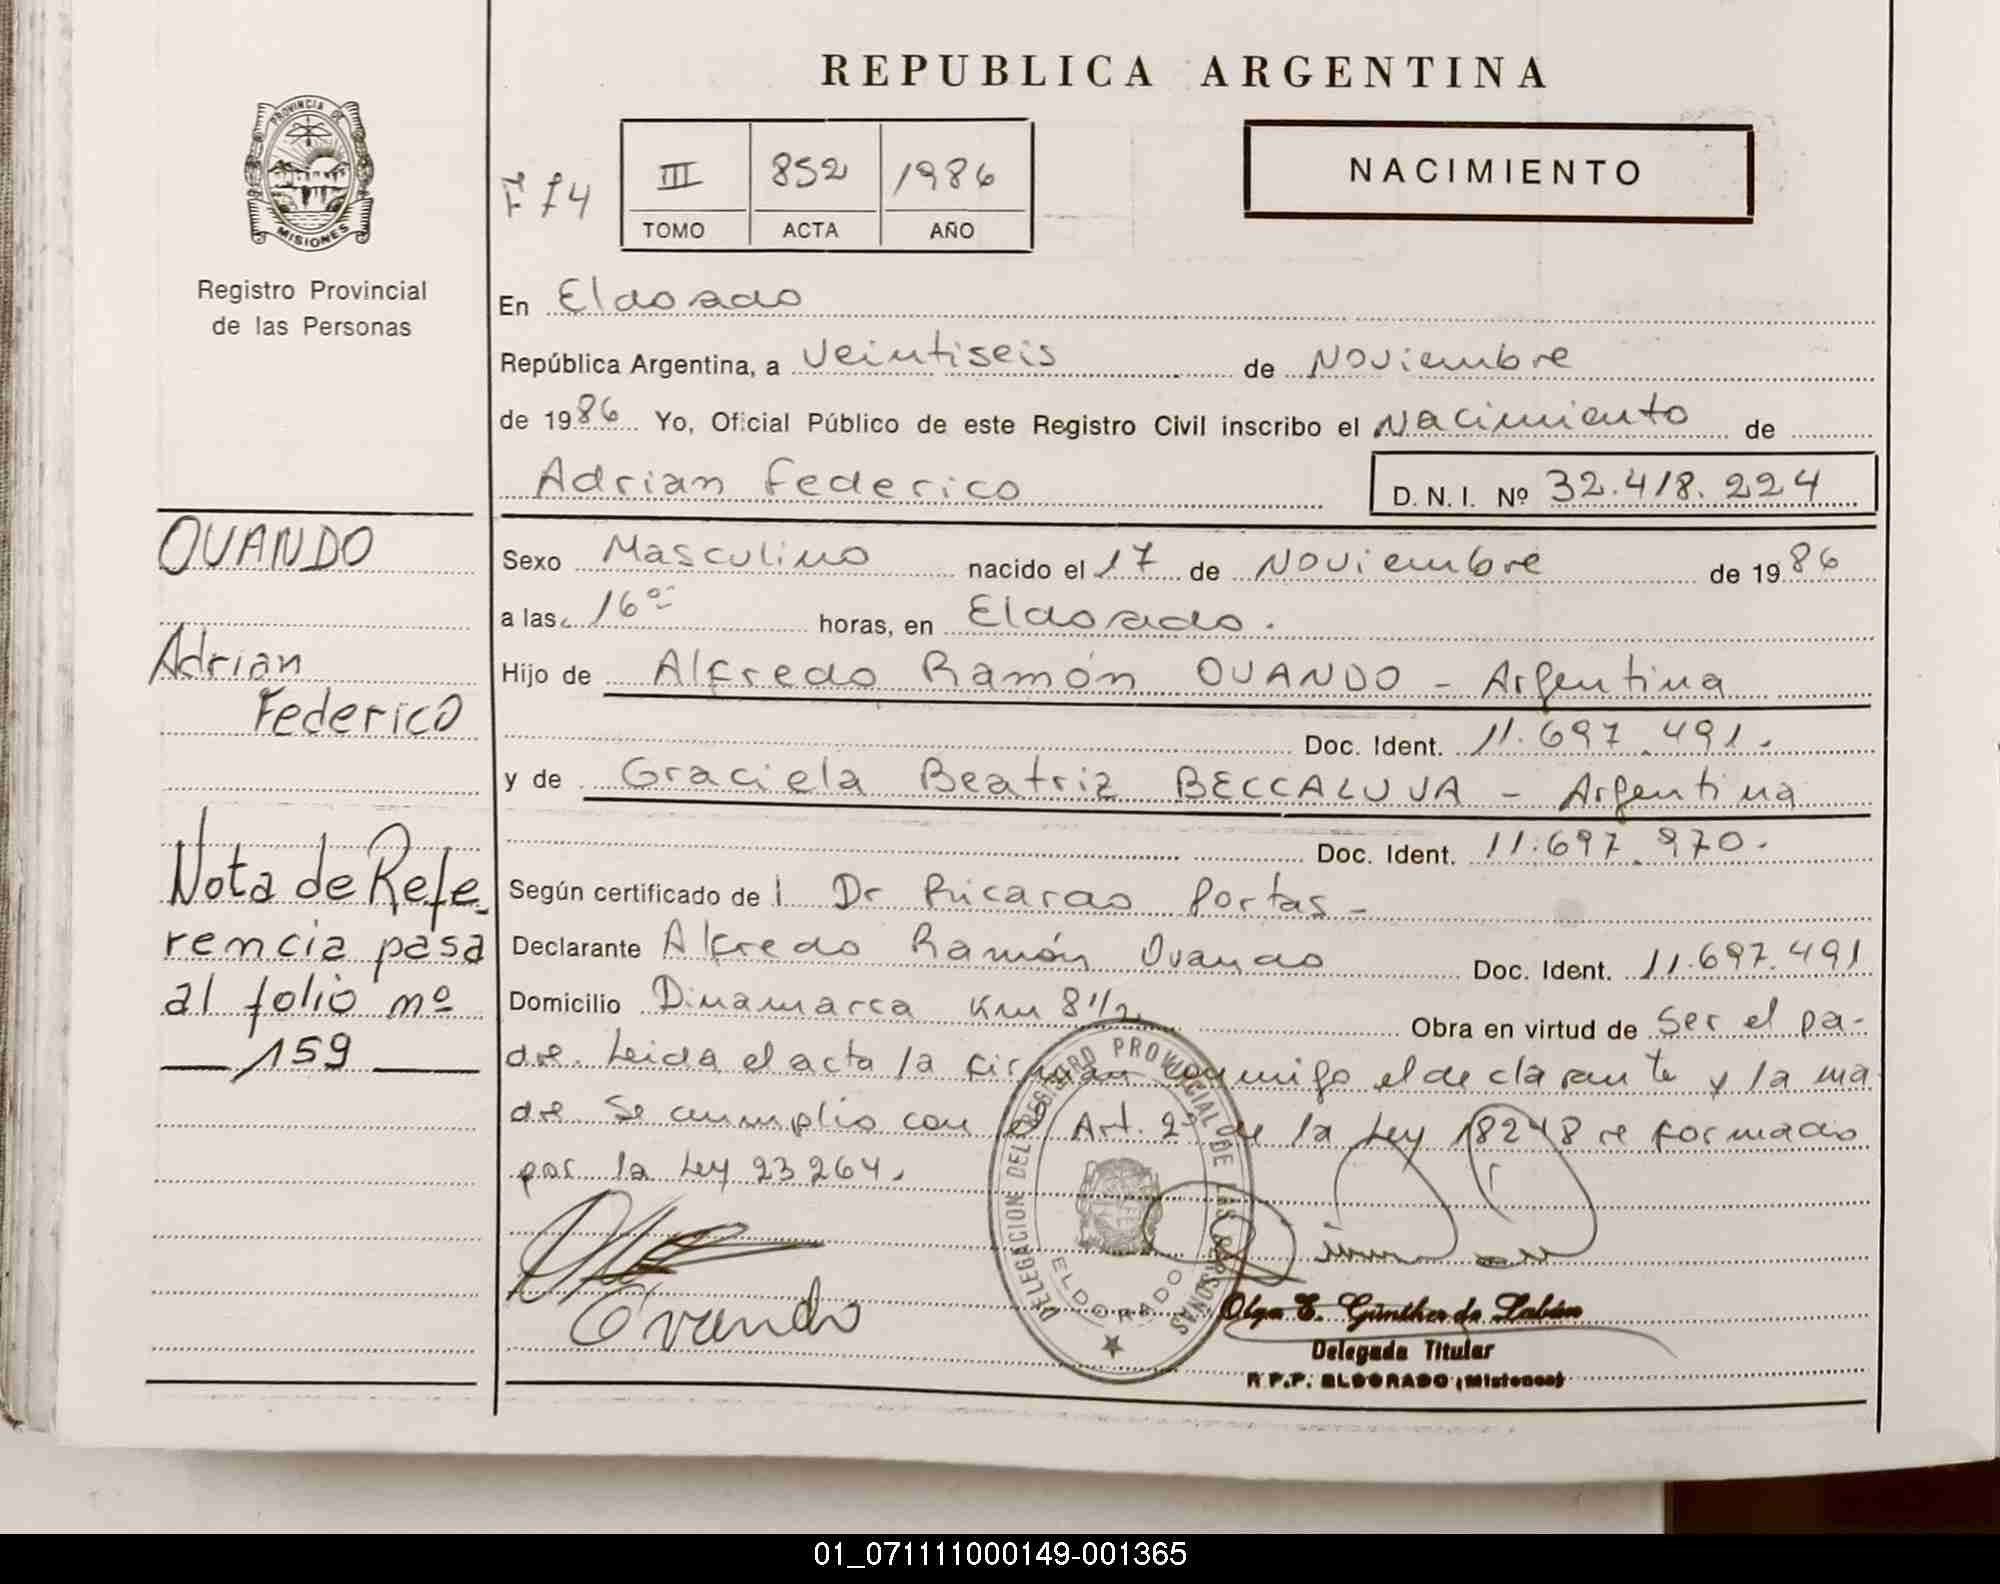 REPUBLICA ARGENTINA
PROVINCIA DE
MISIONES
Registro Provincial
de las Personas
F 74
III 852 1986
TOMO ACTA AÑO
NACIMIENTO
En Eldorado
República Argentina, a veintiseis de Noviembre
de 1986 Yo, Oficial Público de este Registro Civil inscribo el Nacimiento de
Adrian Federico D. N. I. Nº 32.418.224
OVANDO
Adrian
Federico
Nota de Refe-
rencia pasa
al folio nº
159
Sexo Masculino nacido el 17 de Noviembre de 1986
a las 16 horas, en Eldorado.
Hijo de Alfredo Ramón OVANDO - Argentina
Doc. Ident. 11.697.491.
y de Graciela Beatriz BECCALUVA - Argentina
Doc. Ident. 11.697.970.
Según certificado de Dr Ricardo Portas -
Declarante Alfredo Ramón Ovando Doc. Ident. 11.697.491
Domicilio Dinamarca Km 8 1/2 Obra en virtud de ser el pa-
dre. Leida el acta la firman conmigo el declarante y la ma
dre Se cumplio con el Art. 2º de la Ley 18248 reformado
por la Ley 23264.
Ovando
DELEGACION DEL REGISTRO PROVINCIAL DE LAS PERSONAS
ELDORADO
Olga E. Günther de Labán
Delegada Titular
R.P.P. ELDORADO (Misiones)
01_071111000149-001365